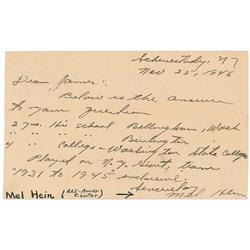 Schenectady, N Y
Nov 25, 1946
Dear James:
Below is the answer
to your question
2 yrs. His school Bellingham, Wash
" " " " Burlington
4 " College - Washington State College
Played on N.Y. Giant team
"1931 to 1945" inclusive.
Sincerely
Mel Hein
Mel Hein (All-Amer. Center) →